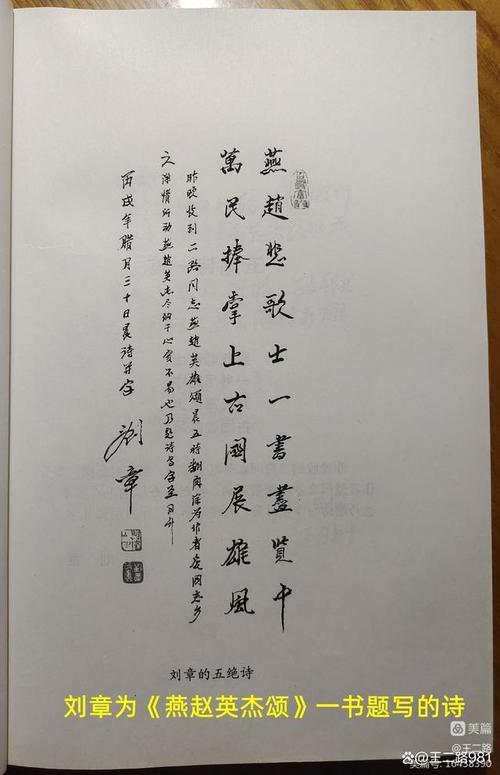 燕趙悲歌士一書盡覽中
萬民捧掌上古國展雄風
昨晚收到二路同志燕趙英雄頌晨五時翻閱深為作者愛國愛鄉
之深情所動燕趙英杰尽纳于心實不易也乃題詩寫字至日升
丙戌年腊月三十日晨詩并字
劉章
刘章的五绝诗
刘章为《燕赵英杰颂》一书题写的诗
美篇
@王二路
美篇号: 16438390
@王二路981